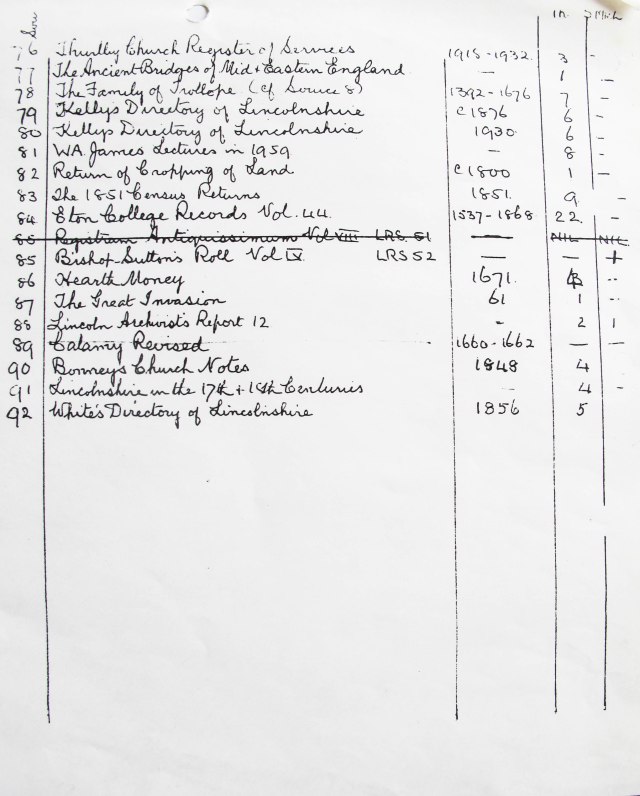 Sou IN.
76 Thurlby Church Register of Services 1918-1932. 3 -
77 The Ancient Bridges of Mid + Eastern England — 1 -
78 The Family of Trollope (cf Source 8) 1392-1676 7 -
79 Kellys Directory of Lincolnshire c1876 6 -
80 Kellys Directory of Lincolnshire 1930 6 -
81 WA. James Lectures in 1959 — 8 -
82 Return of Cropping of Land c1800 1 -
83 The 1851 Census Returns 1851. 9 -
84 Eton College Records Vol. 44. 1537-1868 22. -
85 Registrum Antiquissimum Vol VIII LRS. 51 — NIL NIL
85 Bishop Sutton's Roll Vol IX. LRS 52 — — +
86 Hearth Money 1671. -
87 The Great Invasion 61 1 -
88 Lincoln Archivists Report 12 - 2 1
89 Calamy Revised 1660-1662 — —
90 Bonneys Church Notes 1848 4
91 Lincolnshire in the 17th + 18th Centuries - 4 -
92 White's Directory of Lincolnshire 1856 5